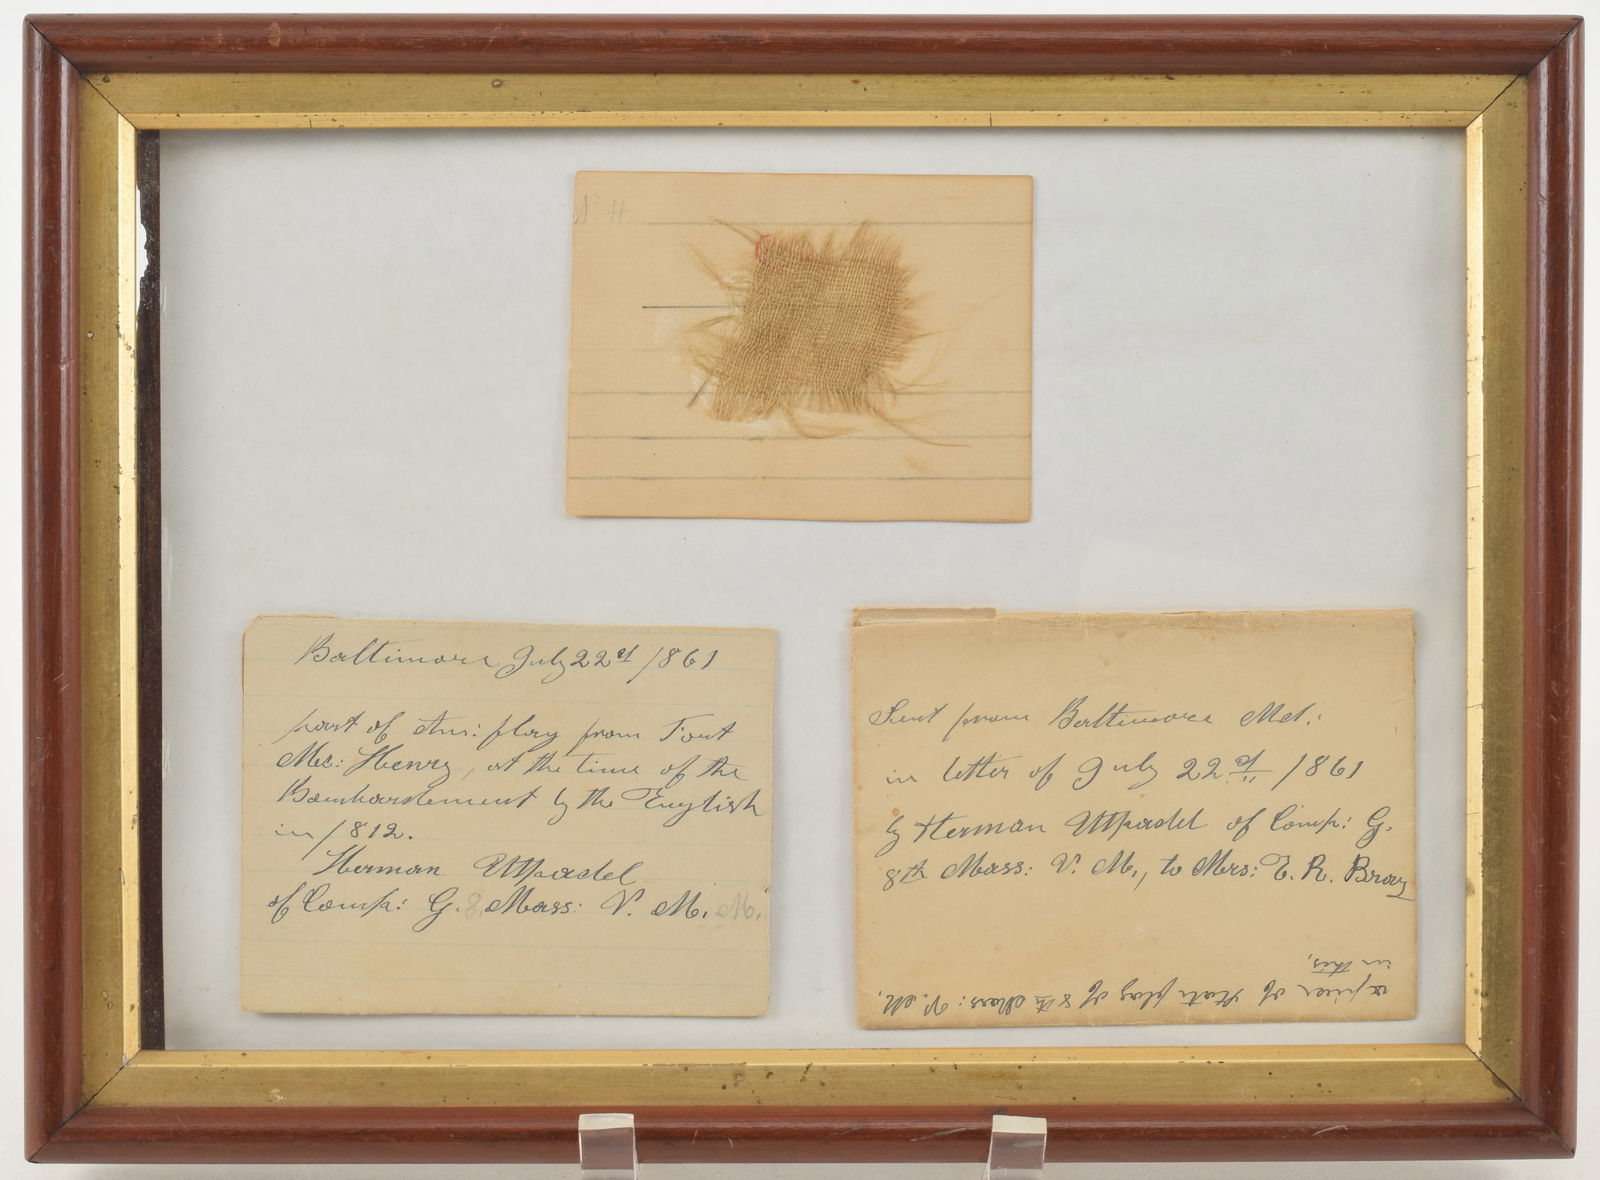 Baltimore July 22d 1861
part of Am: flag from Fort
Mc: Henry, at the time of the
Bombardement by the English
in 1812.
Herman Uttpadel
of Comp: G. 8. Mass: V. M. M.
Sent from Baltimore Md.:
in letter of July 22d 1861
by Herman Uttpadel of Comp: G.
8th Mass: V. M., to Mrs: E. R. Bray
a piece of State flag of 8th Mass: V. M.
in this.